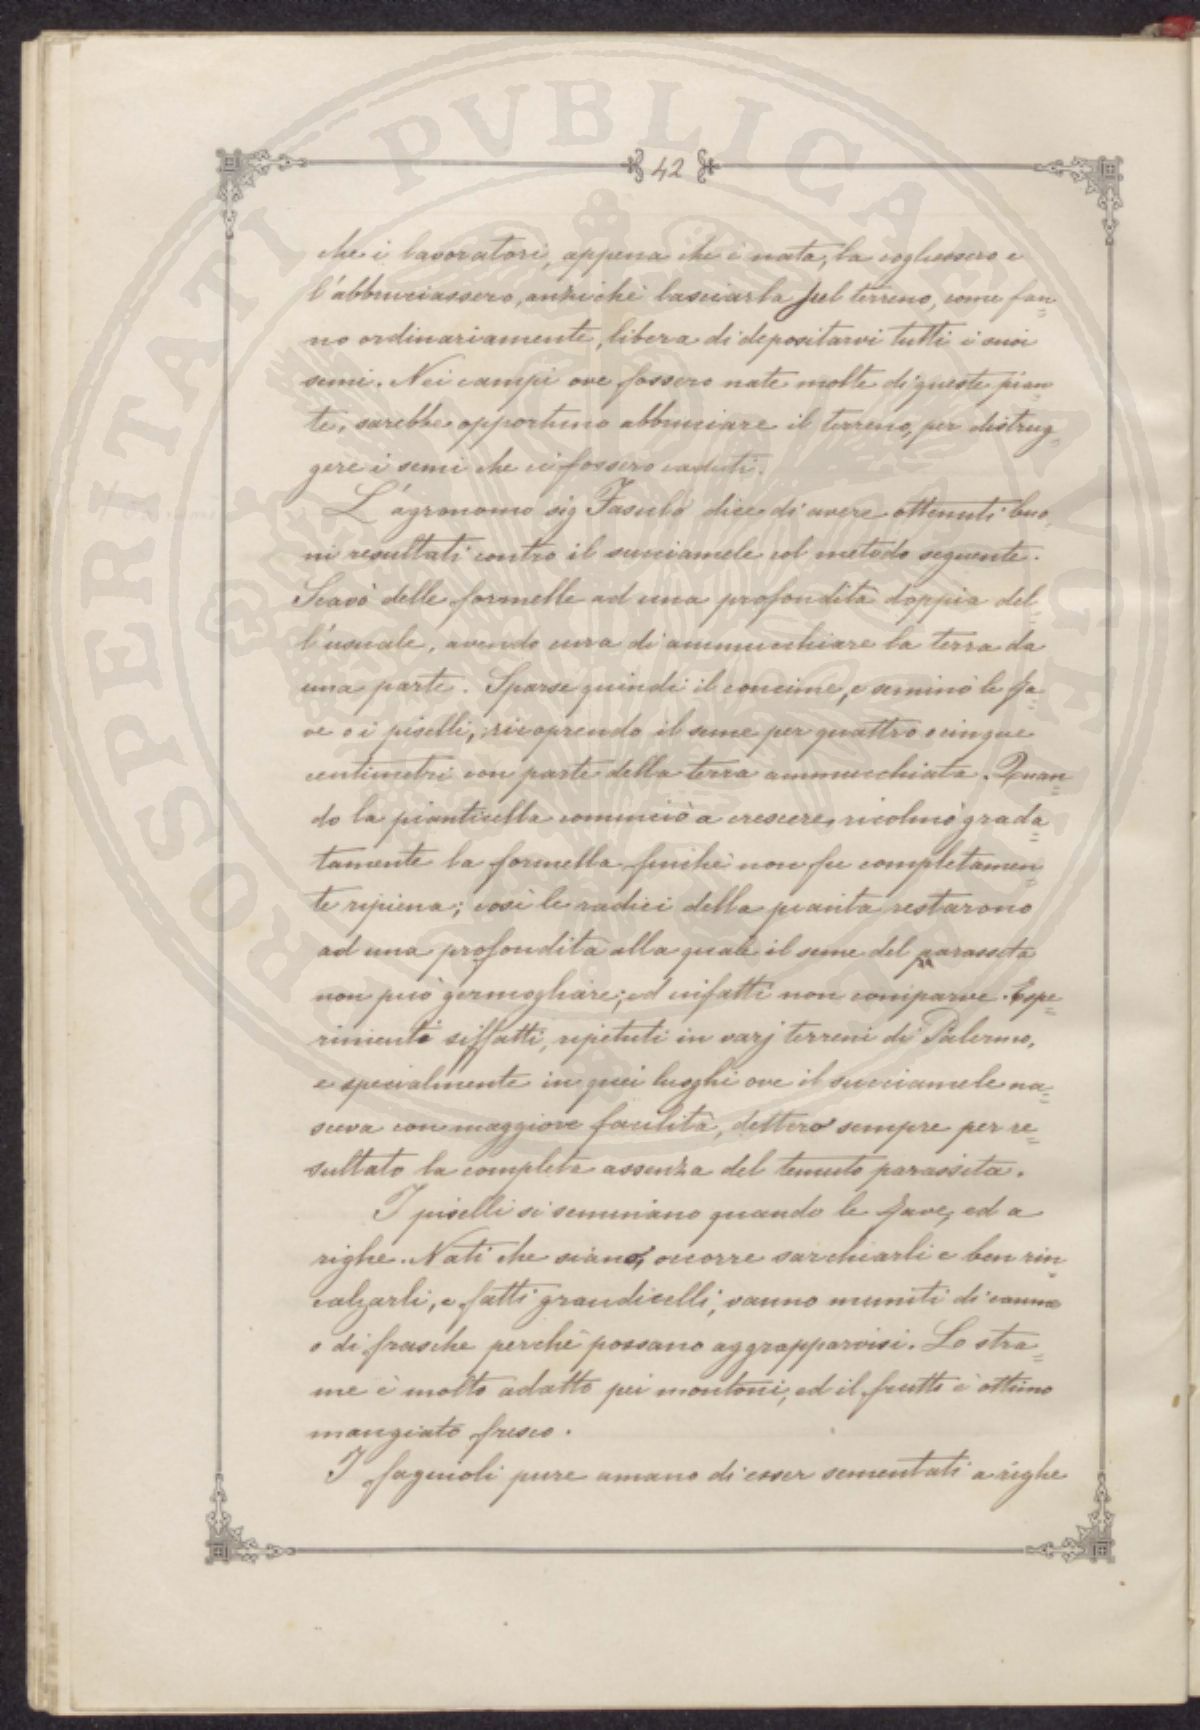 42
che i lavoratori, appena che è nata, la cogliessero e
l'abbruciassero, anziché lasciarla sul terreno, come fan=
no ordinariamente, libera di depositarvi tutti i suoi
semi. Nei campi ove fossero nate molte di queste pian=
te, sarebbe opportuno abbruciare il terreno, per distrug=
gere i semi che ci fossero caduti.
L'agronomo sig Fasulo dice di avere ottenuti buo=
ni resultati contro il succiamele col metodo seguente.
Scavò delle formelle ad una profondità doppia del=
l'usuale, avendo cura di ammucchiare la terra da
una parte. Sparse quindi il concime, e seminò le fa=
ve o i piselli, ricoprendo il seme per quattro o cinque
centimetri con parte della terra ammucchiata. Quan=
do la pianticella cominciò a crescere, ricolmò grada=
tamente la formella finché non fu completamen=
te ripiena; così le radici della pianta restarono
ad una profondità alla quale il seme del parassita
non può germogliare; ed infatti non comparve. Espe=
rimenti siffatti, ripetuti in varj terreni di Palermo,
e specialmente in quei luoghi ove il succiamele na=
sceva con maggiore facilità, dettero sempre per re=
sultato la completa assenza del temuto parassita.
I piselli si seminano quando le fave, ed a
righe. Nati che siano, occorre sarchiarli e ben rin=
calzarli, e fatti grandicelli, vanno muniti di canna
o di frasche perché possano aggrapparvisi. Lo stra=
me è molto adatto pei montoni, ed il frutto è ottimo
mangiato fresco.
I fagiuoli pure amano di esser sementati a righe
PROSPERITATI PVBLICAE AVGENDAE